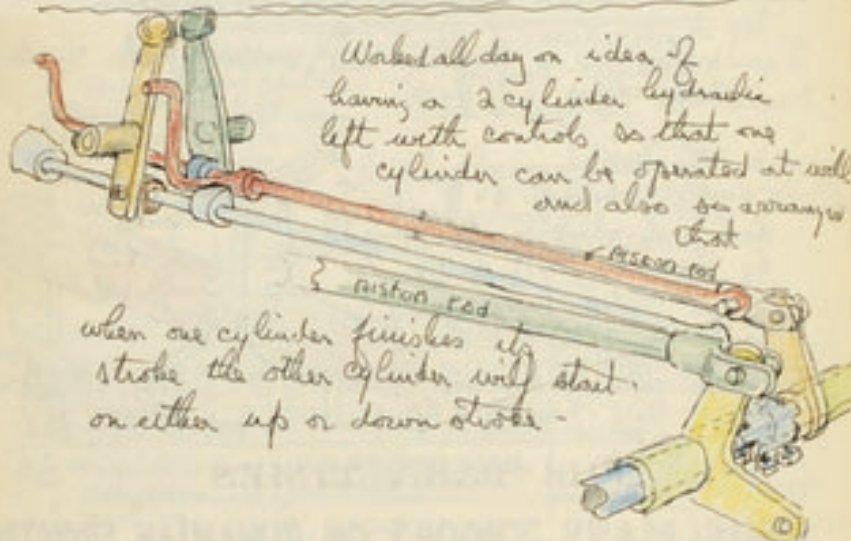 Worked all day on idea of
having a 2 cylinder hydraulic
left with controls so that one
cylinder can be operated at will
and also so arranged
that
PISTON rod
PISTON rod
when one cylinder finishes its
stroke the other cylinder will start.
on either up or down stroke -
©